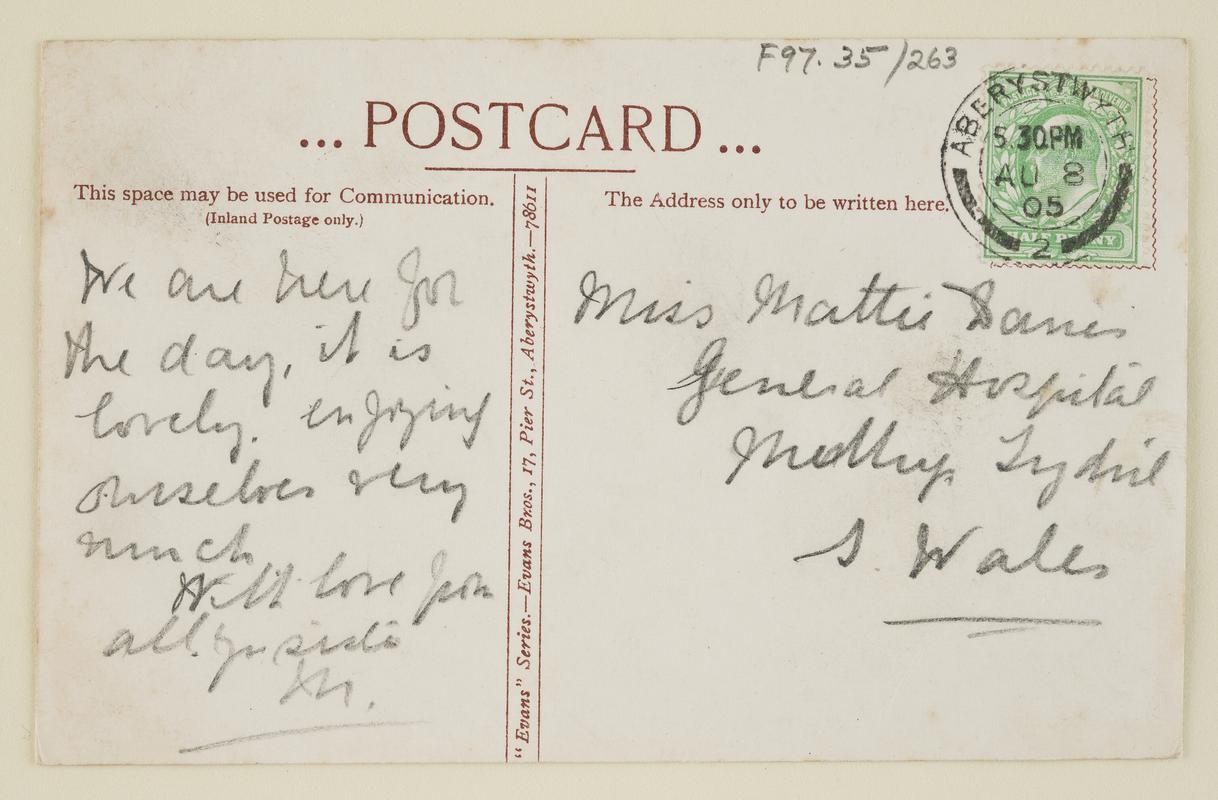 F97.35/263
... POSTCARD ...
This space may be used for Communication.
(Inland Postage only.)
The Address only to be written here.
ABERYSTWYTH
5.30PM
AU 8
05
2
HALF PENNY
"Evans" Series.—Evans Bros., 17, Pier St., Aberystwyth.—78611
We are here for
the day, it is
lovely. enjoying
ourselves very
much
With love from
all. yr sister
M.
Miss Mattie Davies
General Hospital
Merthyr Tydvil
S Wales